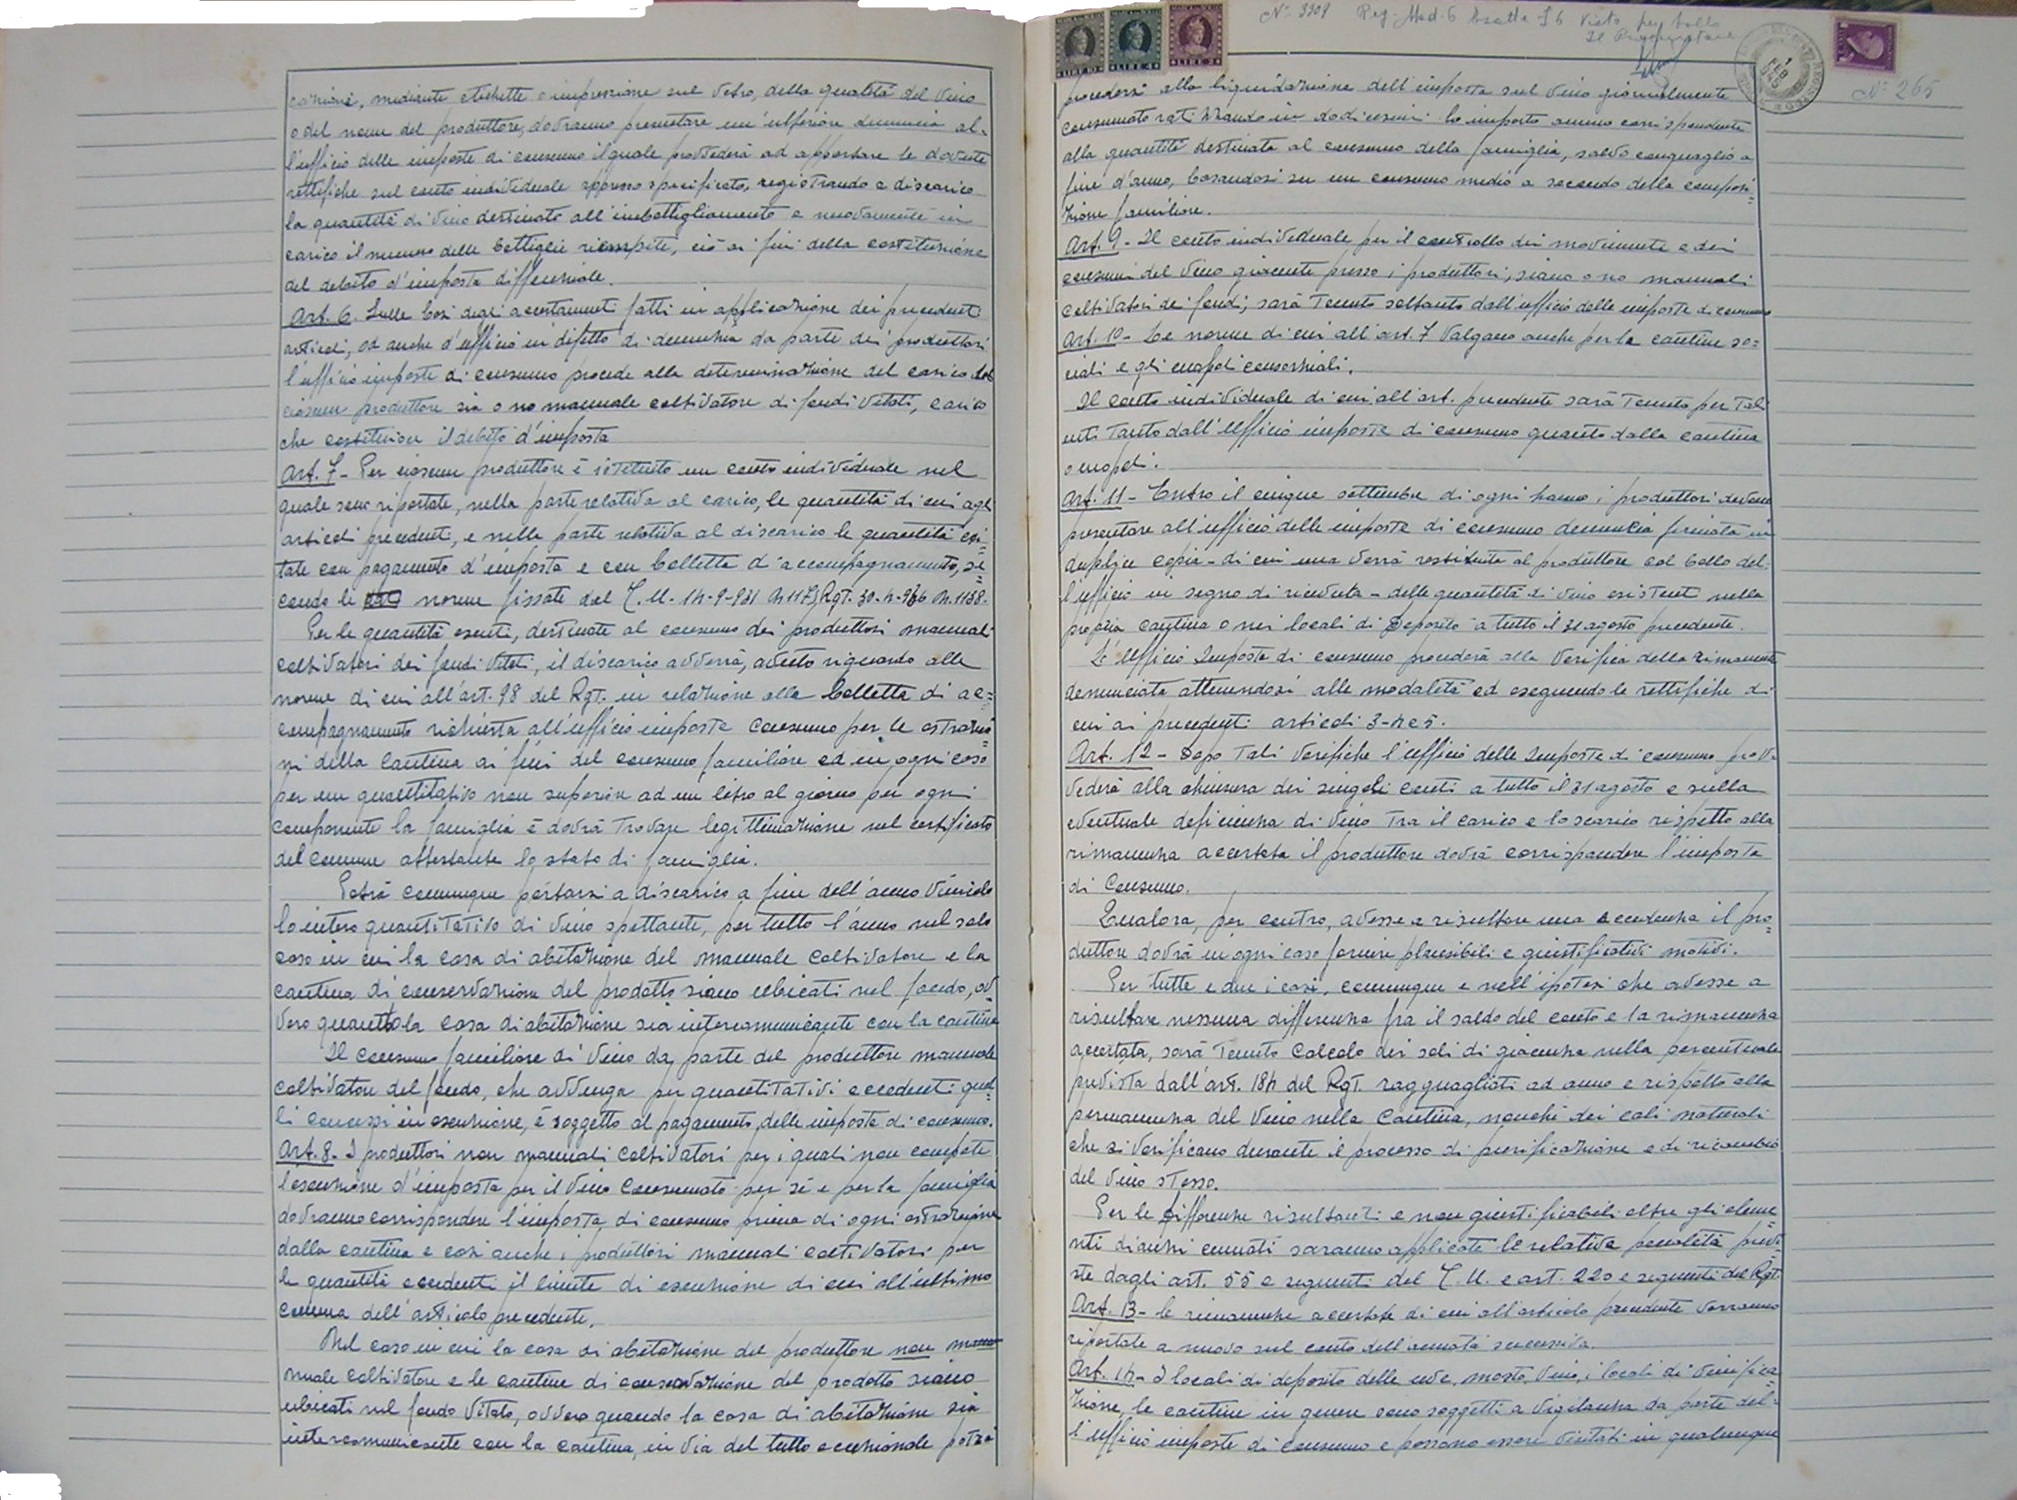 cazioni, mediante etichette o impressione sul vetro, della qualità del vino
o del nome del produttore, dovranno presentare un'ulteriore denuncia al-
l'ufficio delle imposte di consumo il quale provvederà ad apportare le dovute
rettifiche sul conto individuale appresso specificato, registrando a discarico
la quantità di vino destinato all'imbottigliamento e nuovamente in
carico il numero delle bottiglie riempite, ciò ai fini della costituzione
del debito d'imposta differenziale.
Art. 6. Sulle basi degli accertamenti fatti in applicazione dei precedenti
articoli, od anche d'ufficio in difetto di denunzia da parte dei produttori
l'ufficio imposte di consumo procede alla determinazione del carico del
ciascun produttore sia o no manuale coltivatore di fondi vitati, carico
che costituisce il debito d'imposta
Art. 7 - Per ciascun produttore è istituito un conto individuale nel
quale sono riportate, nella parte relativa al carico, le quantità di cui agli
articoli precedenti, e nella parte relativa al discarico le quantità esi=
tate con pagamento d'imposta e con bolletta d'accompagnamento, se=
condo le norme fissate dal T.U. 14-9-931 N. 1175 Rgt. 30-4-936 N. 1138.
Per le quantità esenti, destinate al consumo dei produttori manuali
coltivatori dei fondi vitati, il discarico avverrà, avuto riguardo alle
norme di cui all'art. 98 del Rgt. in relazione alla bolletta di ac=
compagnamento richiesta all'ufficio imposte consumo per le estrazio=
ni della cantina ai fini del consumo familiare ed in ogni caso
per un quantitativo non superiore ad un litro al giorno per ogni
componente la famiglia e dovrà trovare legittimazione nel certificato
del comune attestante lo stato di famiglia.
Potrà comunque portarsi a discarico a fine dell'anno vinicolo
lo intero quantitativo di vino spettante, per tutto l'anno nel solo
caso in cui la casa di abitazione del manuale coltivatore e la
cantina di conservazione del prodotto siano ubicati nel fondo, ov=
vero quando la casa di abitazione sia intercomunicante con la cantina
Il consumo familiare di vino da parte del produttore manuale
coltivatore del fondo, che avvenga per quantitativi eccedenti quel=
li concessi in esenzione, è soggetto al pagamento delle imposte di consumo.
Art. 8. I produttori non manuali coltivatori per i quali non compete
l'esenzione d'imposta per il vino consumato per sè e per la famiglia
dovranno corrispondere l'imposta di consumo prima di ogni estrazione
dalla cantina e così anche i produttori manuali coltivatori per
le quantità eccedenti il limite di esenzione di cui all'ultimo
comma dell'articolo precedente.
Nel caso in cui la casa di abitazione del produttore non ma
nuale coltivatore e le cantine di conservazione del prodotto siano
ubicati nel fondo vitato, ovvero quando la casa di abitazione sia
intercomunicante con la cantina, in via del tutto eccezionale potrà
N° 3309 Reg. Mod. 6 Esatte £ 6 Visto per bollo
Il Procuratore
N° 265
LIRE 10 LIRE 4 LIRE 2
procedersi alla liquidazione dell'imposta sul vino giornalmente
consumato ratizzando in dodicesimi lo importo annuo corrispondente
alla quantità destinata al consumo della famiglia, salvo conguaglio a
fine d'anno, basandosi su un consumo medio a seconda della composi=
zione familiare.
Art. 9 - Il conto individuale per il controllo dei movimenti e dei
consumi del vino giacente presso i produttori, siano o no manuali
coltivatori dei fondi, sarà tenuto soltanto dall'ufficio delle imposte di consumo
Art. 10 - Le norme di cui all'art. 7 valgano anche per le cantine so=
ciali e gli enopoli consorziali.
Il conto individuale di cui all'art. precedente sarà tenuto per tali
enti tanto dall'Ufficio imposte di consumo quanto dalla cantina
o enopoli.
Art. 11 - Entro il cinque settembre di ogni hanno i produttori devono
presentare all'ufficio delle imposte di consumo denunzia firmata in
duplice copia - di cui una verrà restituita al produttore col bollo del-
l'ufficio in segno di ricevuta - delle quantità di vino esistenti nella
propria cantina o nei locali di deposito a tutto il 31 agosto precedente.
L'Ufficio Imposte di consumo procederà alla verifica della rimanenza
denunciata attenendosi alle modalità ed eseguendo le rettifiche di
cui ai precedenti articoli 3-4 e 5.
Art. 12 - Dopo tali verifiche l'ufficio delle Imposte di consumo prov-
vederà alla chiusura dei singoli conti a tutto il 31 agosto e sulla
eventuale deficienza di vino tra il carico e lo scarico rispetto alla
rimanenza accertata il produttore dovrà corrispondere l'imposta
di Consumo.
Qualora, per contro, avesse a risultare una eccedenza il pro=
duttore dovrà in ogni caso fornire plausibili e giustificativi motivi.
Per tutte e due i casi, comunque e nell'ipotesi che avesse a
risultare nessuna differenza fra il saldo del conto e la rimanenza
accertata, sarà tenuto calcolo dei soli di giacenza nella percentuale
prevista dall'art. 184 del Rgt. ragguagliati ad anno e rispetto alla
permanenza del vino nella Cantina, nonchè dei cali naturali
che si verificano durante il processo di purificazione e di ricambio
del vino stesso.
Per le differenze risultanti e non giustificabili oltre gli eleme=
nti dianzi cennati saranno applicate le relative penalità previ=
ste dagli art. 55 e seguenti del T.U. e art. 220 e seguenti del Rgt.
Art. 13 - le rimanenze accertate di cui all'articolo precedente verranno
riportate a nuovo sul conto dell'annata successiva.
Art. 14 - I locali di deposito delle uve, mosto, vino, i locali di vinifica
zione, le cantine in genere sono soggetti a vigilanza da parte del-
l'ufficio imposte di consumo e possono essere visitati in qualunque